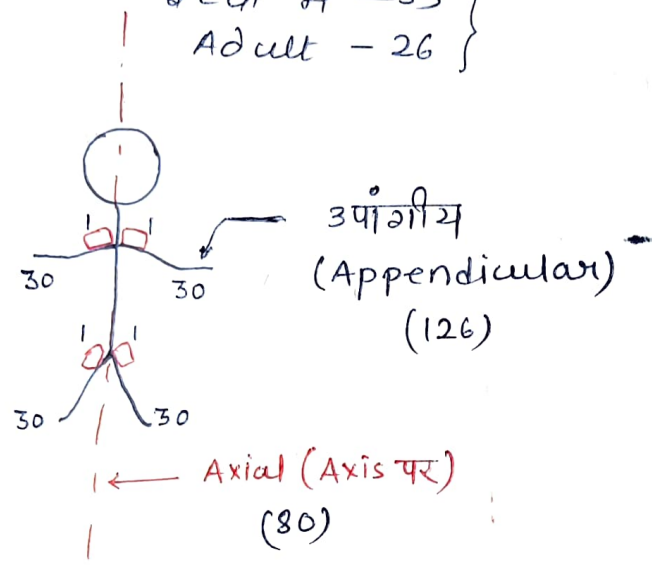 Adult - 26
1 1
उपांगीय
30 30
(Appendicular)
(126)
1 1
30 30
Axial (Axis पर)
(80)